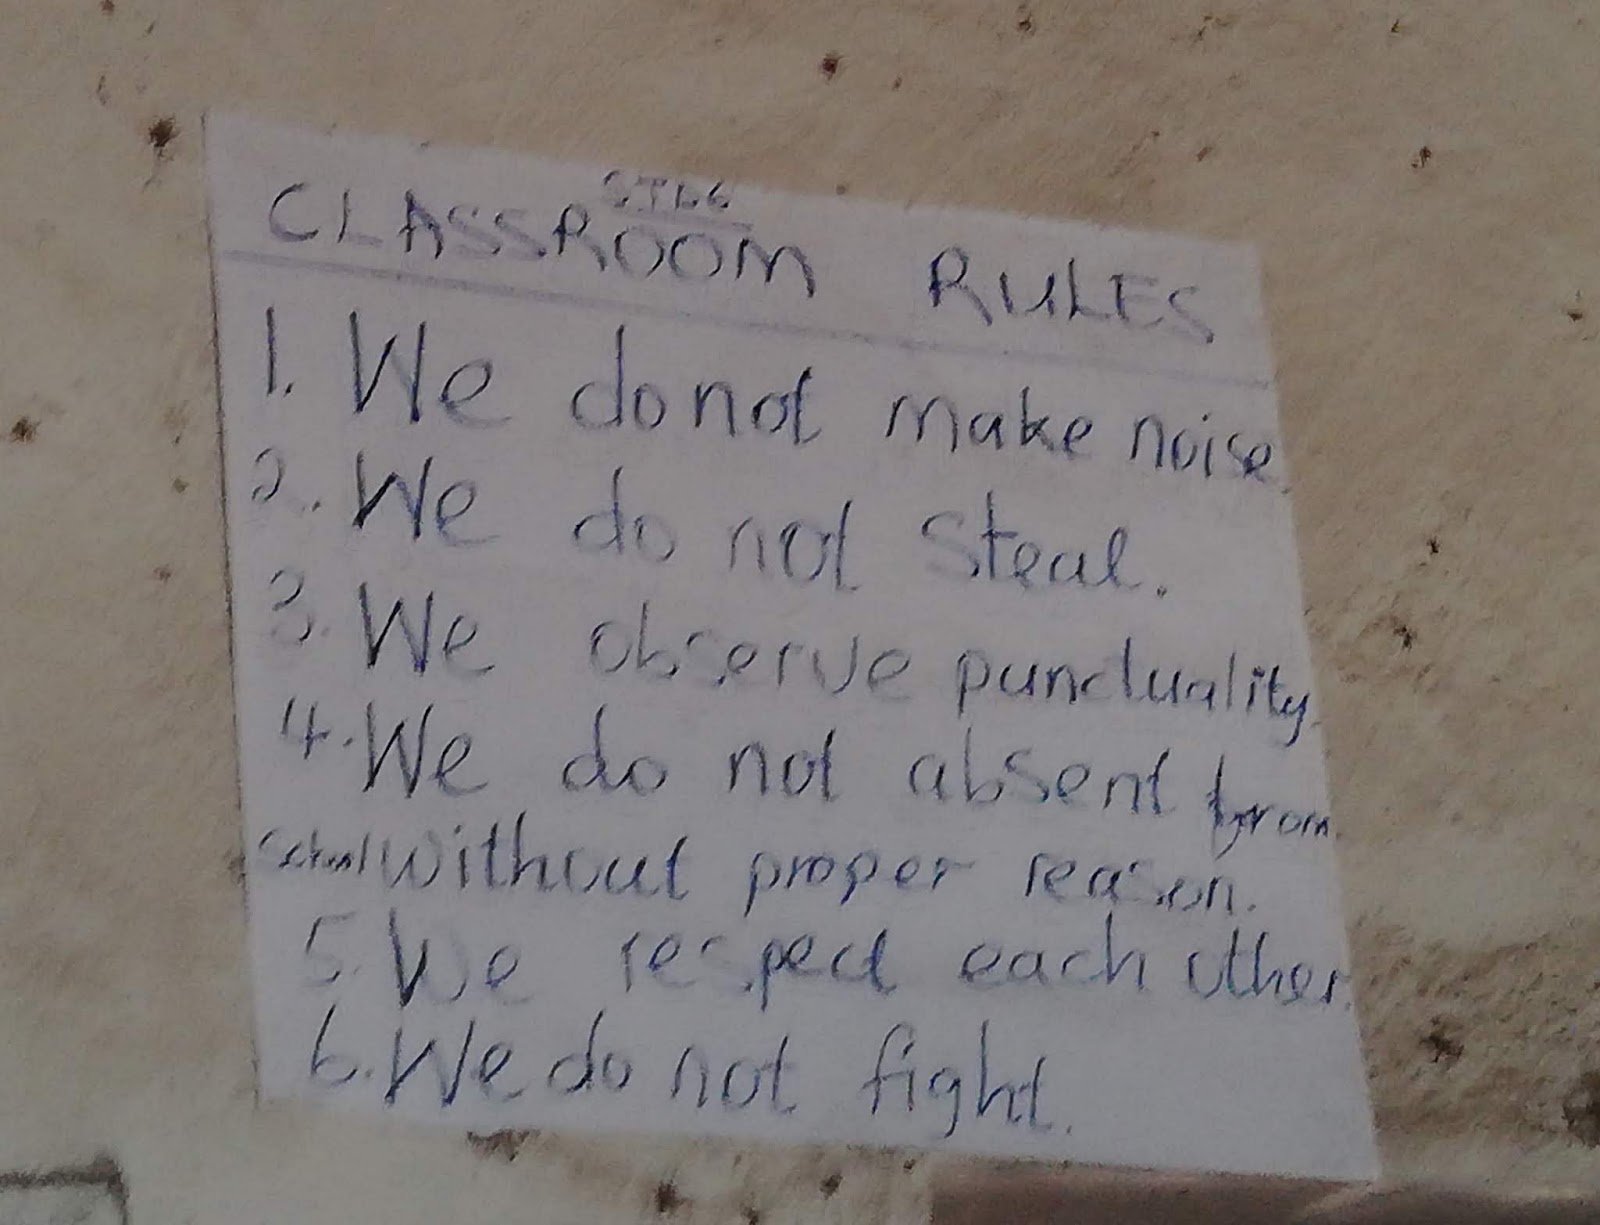 CLASSROOM RULES
1. We do not make noise.
2. We do not steal.
3. We observe punctuality.
4. We do not absent from
school without proper reason.
5. We respect each other.
6. We do not fight.